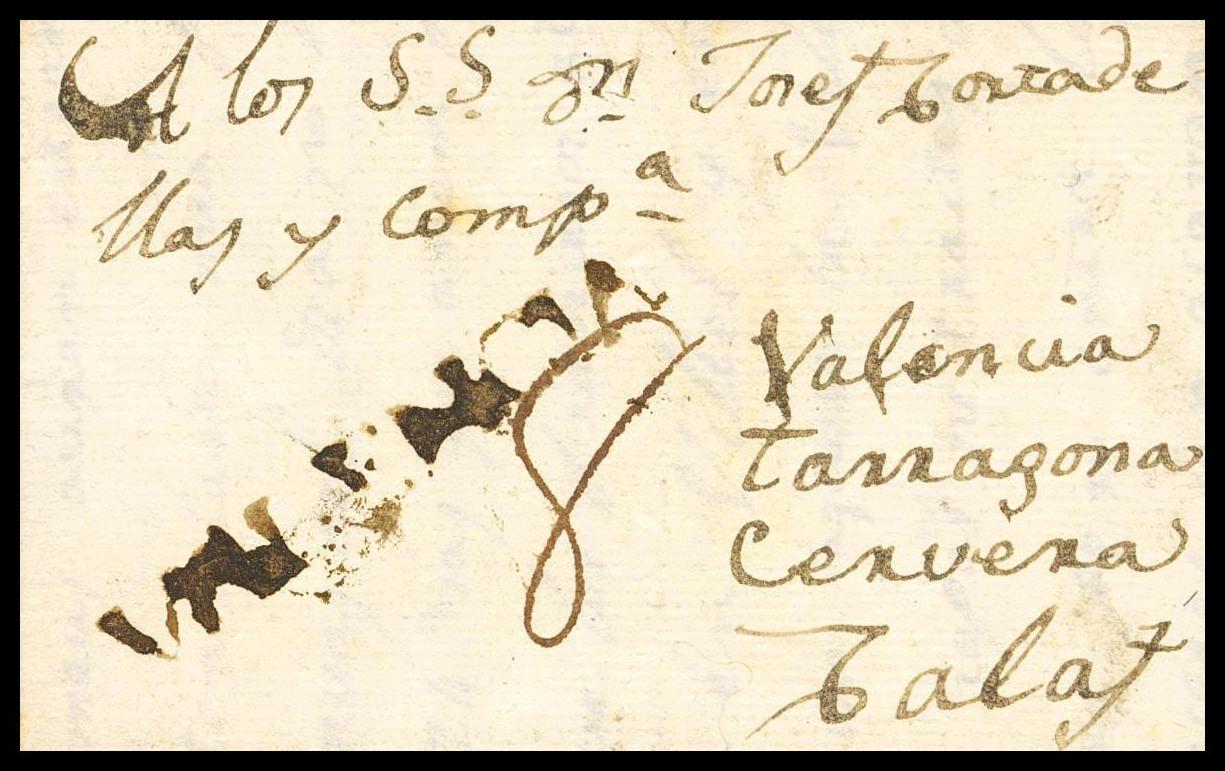 A los S.S. Dn. Josef Cortade
llas y compa
8
Valencia
Tarragona
Cervera
Calaf